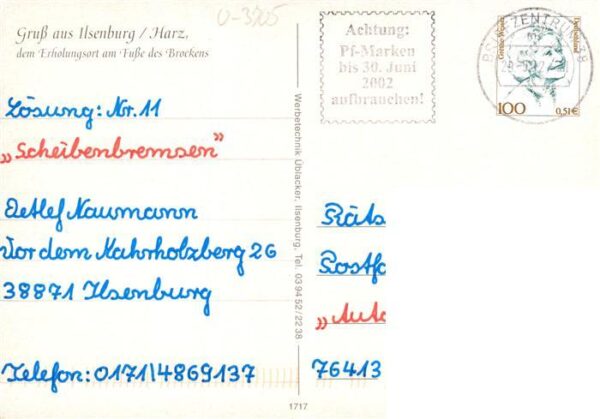 U-3905
Gruß aus Ilsenburg / Harz,
dem Erholungsort am Fuße des Brockens
Lösung: Nr. 11
„Scheibenbremsen"
Detlef Naumann
Vor dem Kahrholzberg 26
38871 Ilsenburg
Telefon: 0171\4869137
Werbetechnik Üblacker, Ilsenburg, Tel. 03 94 52 / 22 38
1717
Achtung:
Pf-Marken
bis 30. Juni
2002
aufbrauchen!
Grethe Weiser
Deutschland
100
0,51€
Räts
Postfa
„Auto
76413